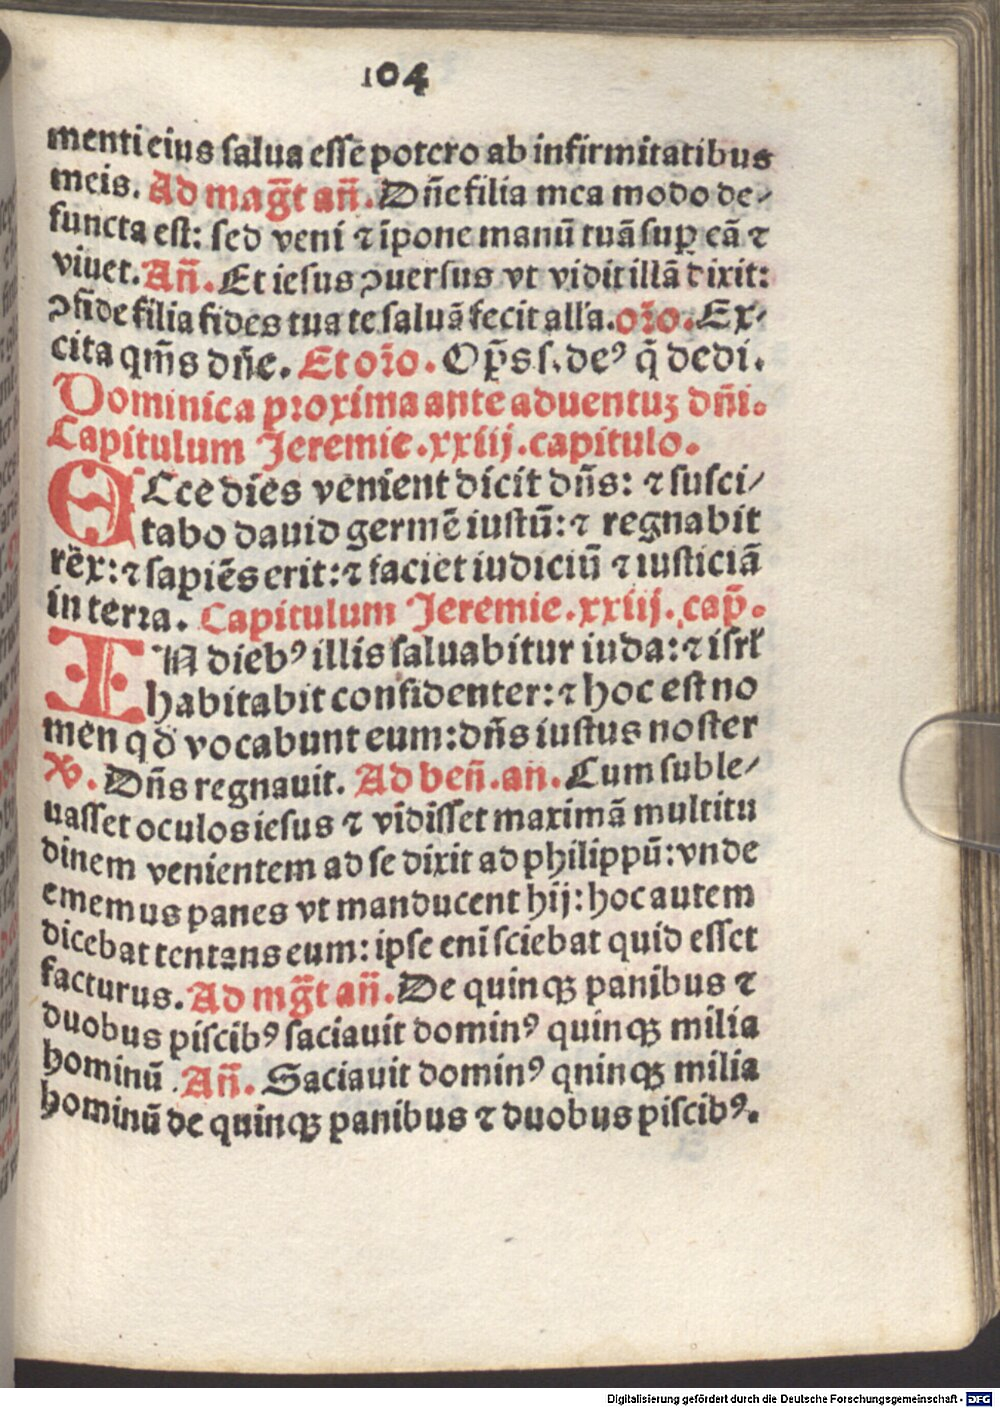 104
menti eius salua esse potero ab infirmitatibus
meis. Ad mag̃t añ. Dñe filia mea modo de⸗
functa est: sed veni ⁊ īpone manū tuā sup eā ⁊
viuet. Añ. Et iesus ꝯuersus vt vidit illā dixit:
ꝯfide filia fides tua te saluā fecit alľa. oř̃o. Ex⸗
cita qm̃s dñe. Et oř̃o. Op̃s s. deꝰ q̄ dedi.
Dominica proxima ante aduentuʒ dñi.
Capitulum Jeremie .xxiij. capitulo.
ECce dies venient dicit dñs: ⁊ susci⸗
tabo dauid germē iustū: ⁊ regnabit
rex: ⁊ sapiēs erit: ⁊ faciet iudiciū ⁊ iusticiā
in terra. Capitulum Jeremie .xxiij. cap̃.
IN diebꝰ illis saluabitur iuda: ⁊ isrl̃
habitabit confidenter: ⁊ hoc est no
men qd̃ vocabunt eum: dñs iustus noster
℣. Dñs regnauit. Ad beñ. an. Cum suble⸗
uasset oculos iesus ⁊ vidisset maximā multitu
dinem venientem ad se dixit ad philippū: vnde
ememus panes vt manducent hij: hoc autem
dicebat tentans eum: ipse enī sciebat quid esset
facturus. Ad mg̃t añ. De quinqꝫ panibus ⁊
duobus piscibꝰ saciauit dominꝰ quinqꝫ milia
hominū. Añ. Saciauit dominꝰ qninqꝫ milia
hominū de quinqꝫ panibus ⁊ duobus piscibꝰ.
Digitalisierung gefördert durch die Deutsche Forschungsgemeinschaft - DFG